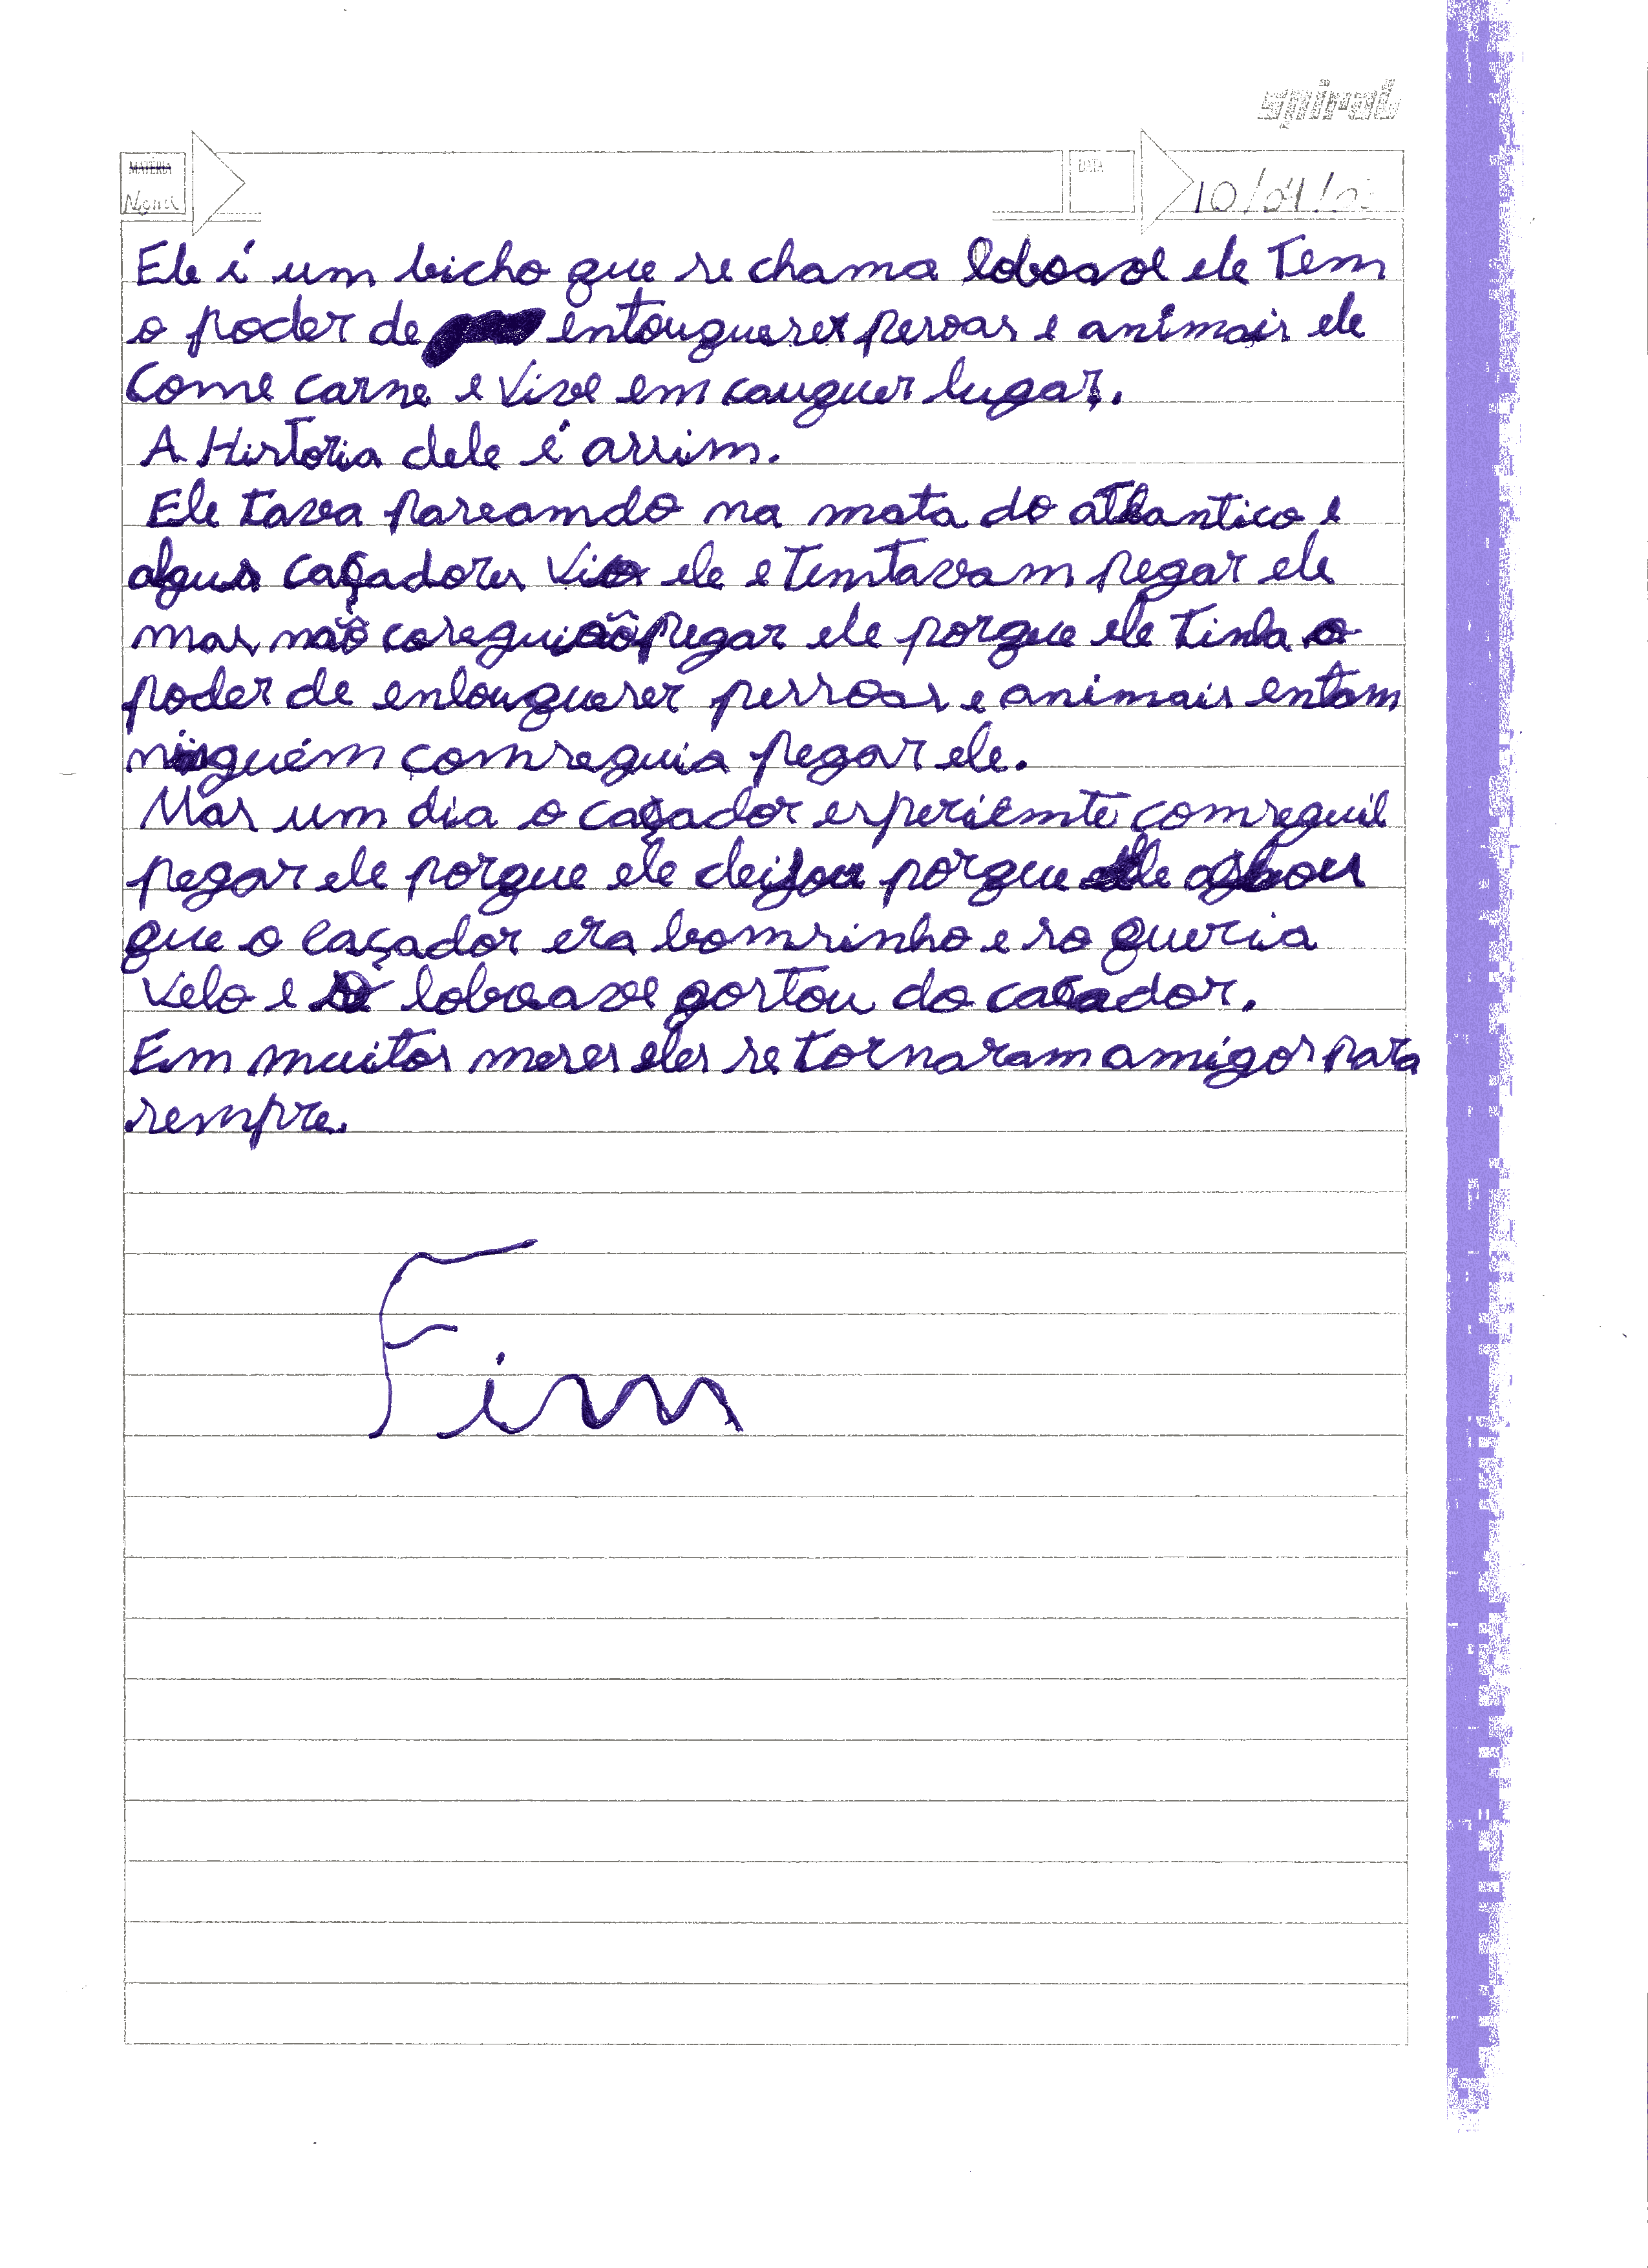 spiral
MATÉRIA DATA
Nome 10/01/
Ele é um bicho que se chama loboave ele Tem
o poder de entouqueser pesoas e animais ele
Come carne e Vive em cauquer lugar.
A Historia dele é assim.
Ele tava paseamdo na mata do atlantico e
algus caçadores Vio ele e temtavam pegar ele
mas não coseguião pegar ele porque ele tinha o
poder de enlouqueser pessoas e animais entam
ninguém comseguia pegar ele.
Mas um dia o caçador esperiemte comseguil
pegar ele porque ele deixou porque ele achou
que o caçador era bomsinho e so queria
Velo e o loboave gostou do caçador.
Em muitos meses eles se tornaram amigos para
sempre.
Fim